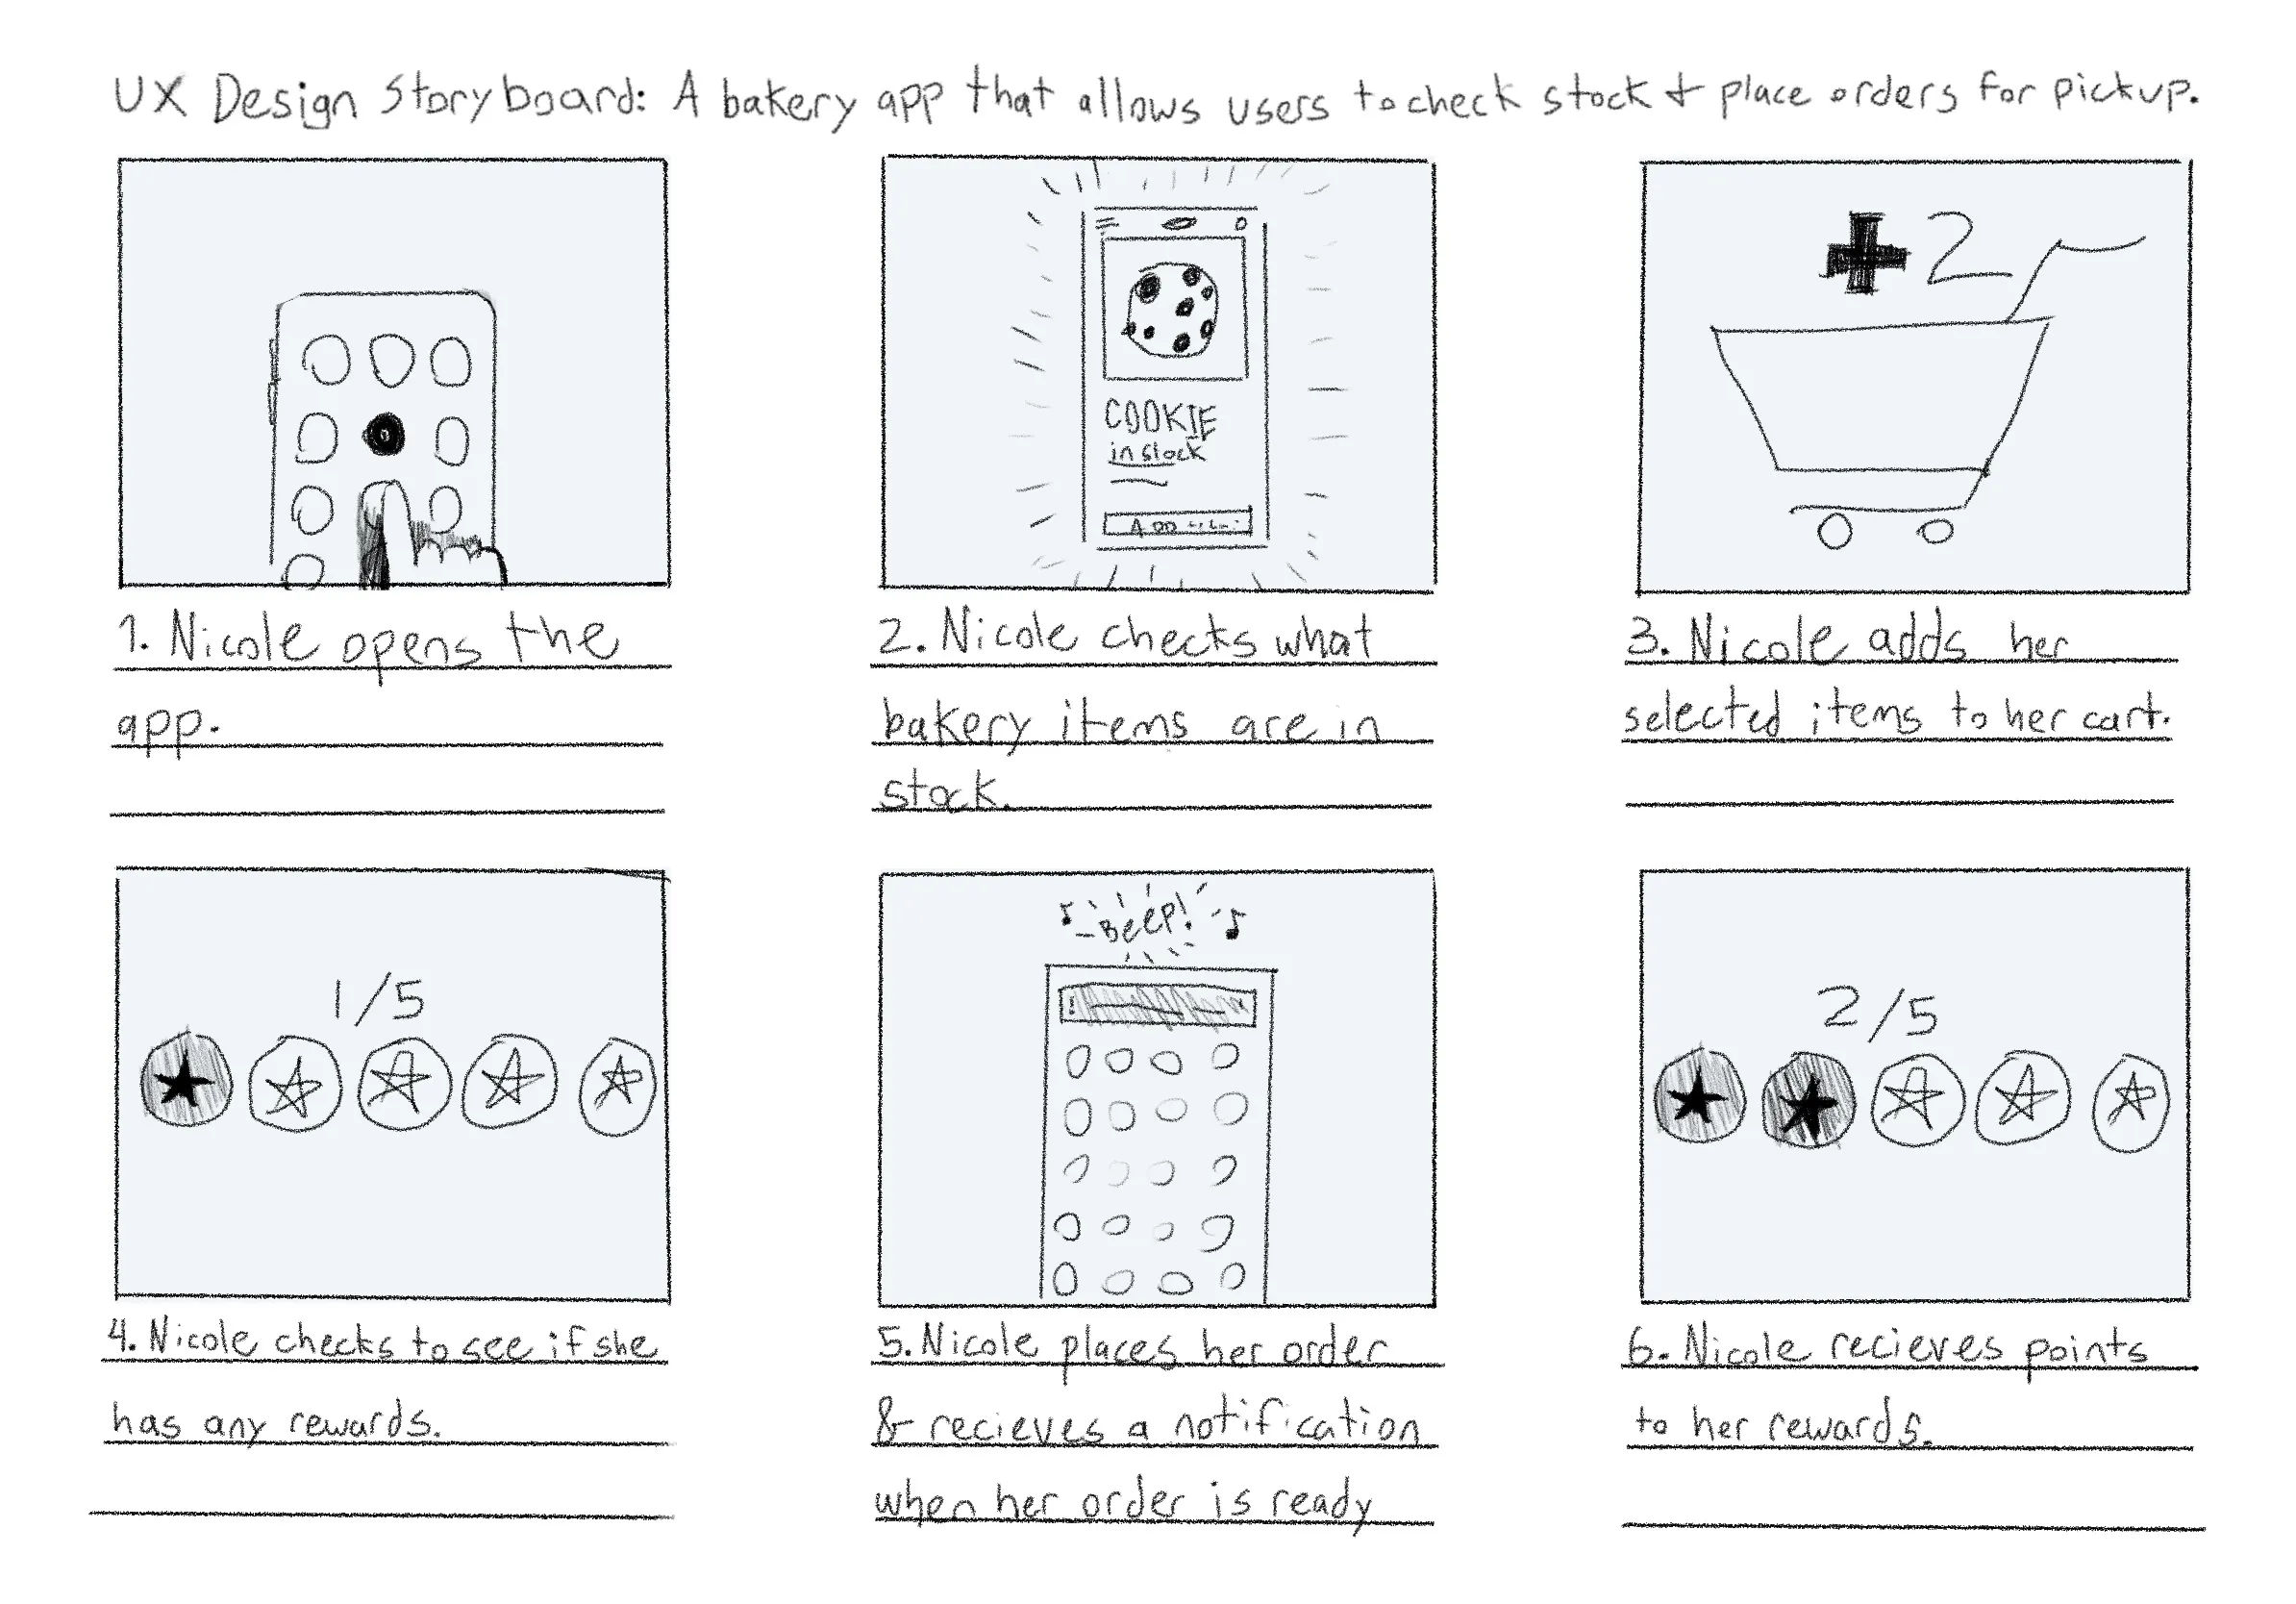 UX Design Storyboard: A bakery app that allows users to check stock & place orders for pickup.
COOKIE
in stock
ADD
+2
1. Nicole opens the
app.
2. Nicole checks what
bakery items are in
stock.
3. Nicole adds her
selected items to her cart.
1/5
BEEP!
!
2/5
4. Nicole checks to see if she
has any rewards.
5. Nicole places her order
& recieves a notification
when her order is ready
6. Nicole recieves points
to her rewards.